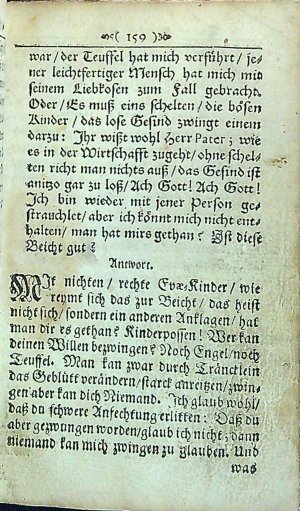 ( 159 )
war / der Teuffel hat mich verführt / je-
ner leichtfertiger Mensch hat mich mit
seinem Liebkosen zum Fall gebracht.
Oder / Es muß eins schelten / die bösen
Kinder / das lose Gesind zwingt einem
darzu: Ihr wißt wohl Herr Pater; wie
es in der Wirtschafft zugeht / ohne schel-
ten richt man nichts auß / das Gesind ist
anitzo gar zu loß / Ach Gott! Ach Gott!
Ich bin wieder mit jener Person ge-
strauchlet / aber ich könnt mich nicht ent-
halten / man hat mirs gethan? Ist diese
Beicht gut?
Antwort.
MIt nichten / rechte Evæ-Kinder / wie
reymt sich das zur Beicht / das heist
nicht sich / sondern ein anderen Anklagen / hat
man dir es gethan? Kinderpossen! Wer kan
deinen Willen bezwingen? Noch Engel / noch
Teuffel. Man kan zwar durch Träncklein
das Geblütt verändern / starck anreitzen / zwin-
gen aber kan dich Niemand. Ich glaub wohl /
daß du schwere Anfechtung erlitten: Daß du
aber gezwungen worden / glaub ich nicht; dann
niemand kan mich zwingen zu glauben. Und
was